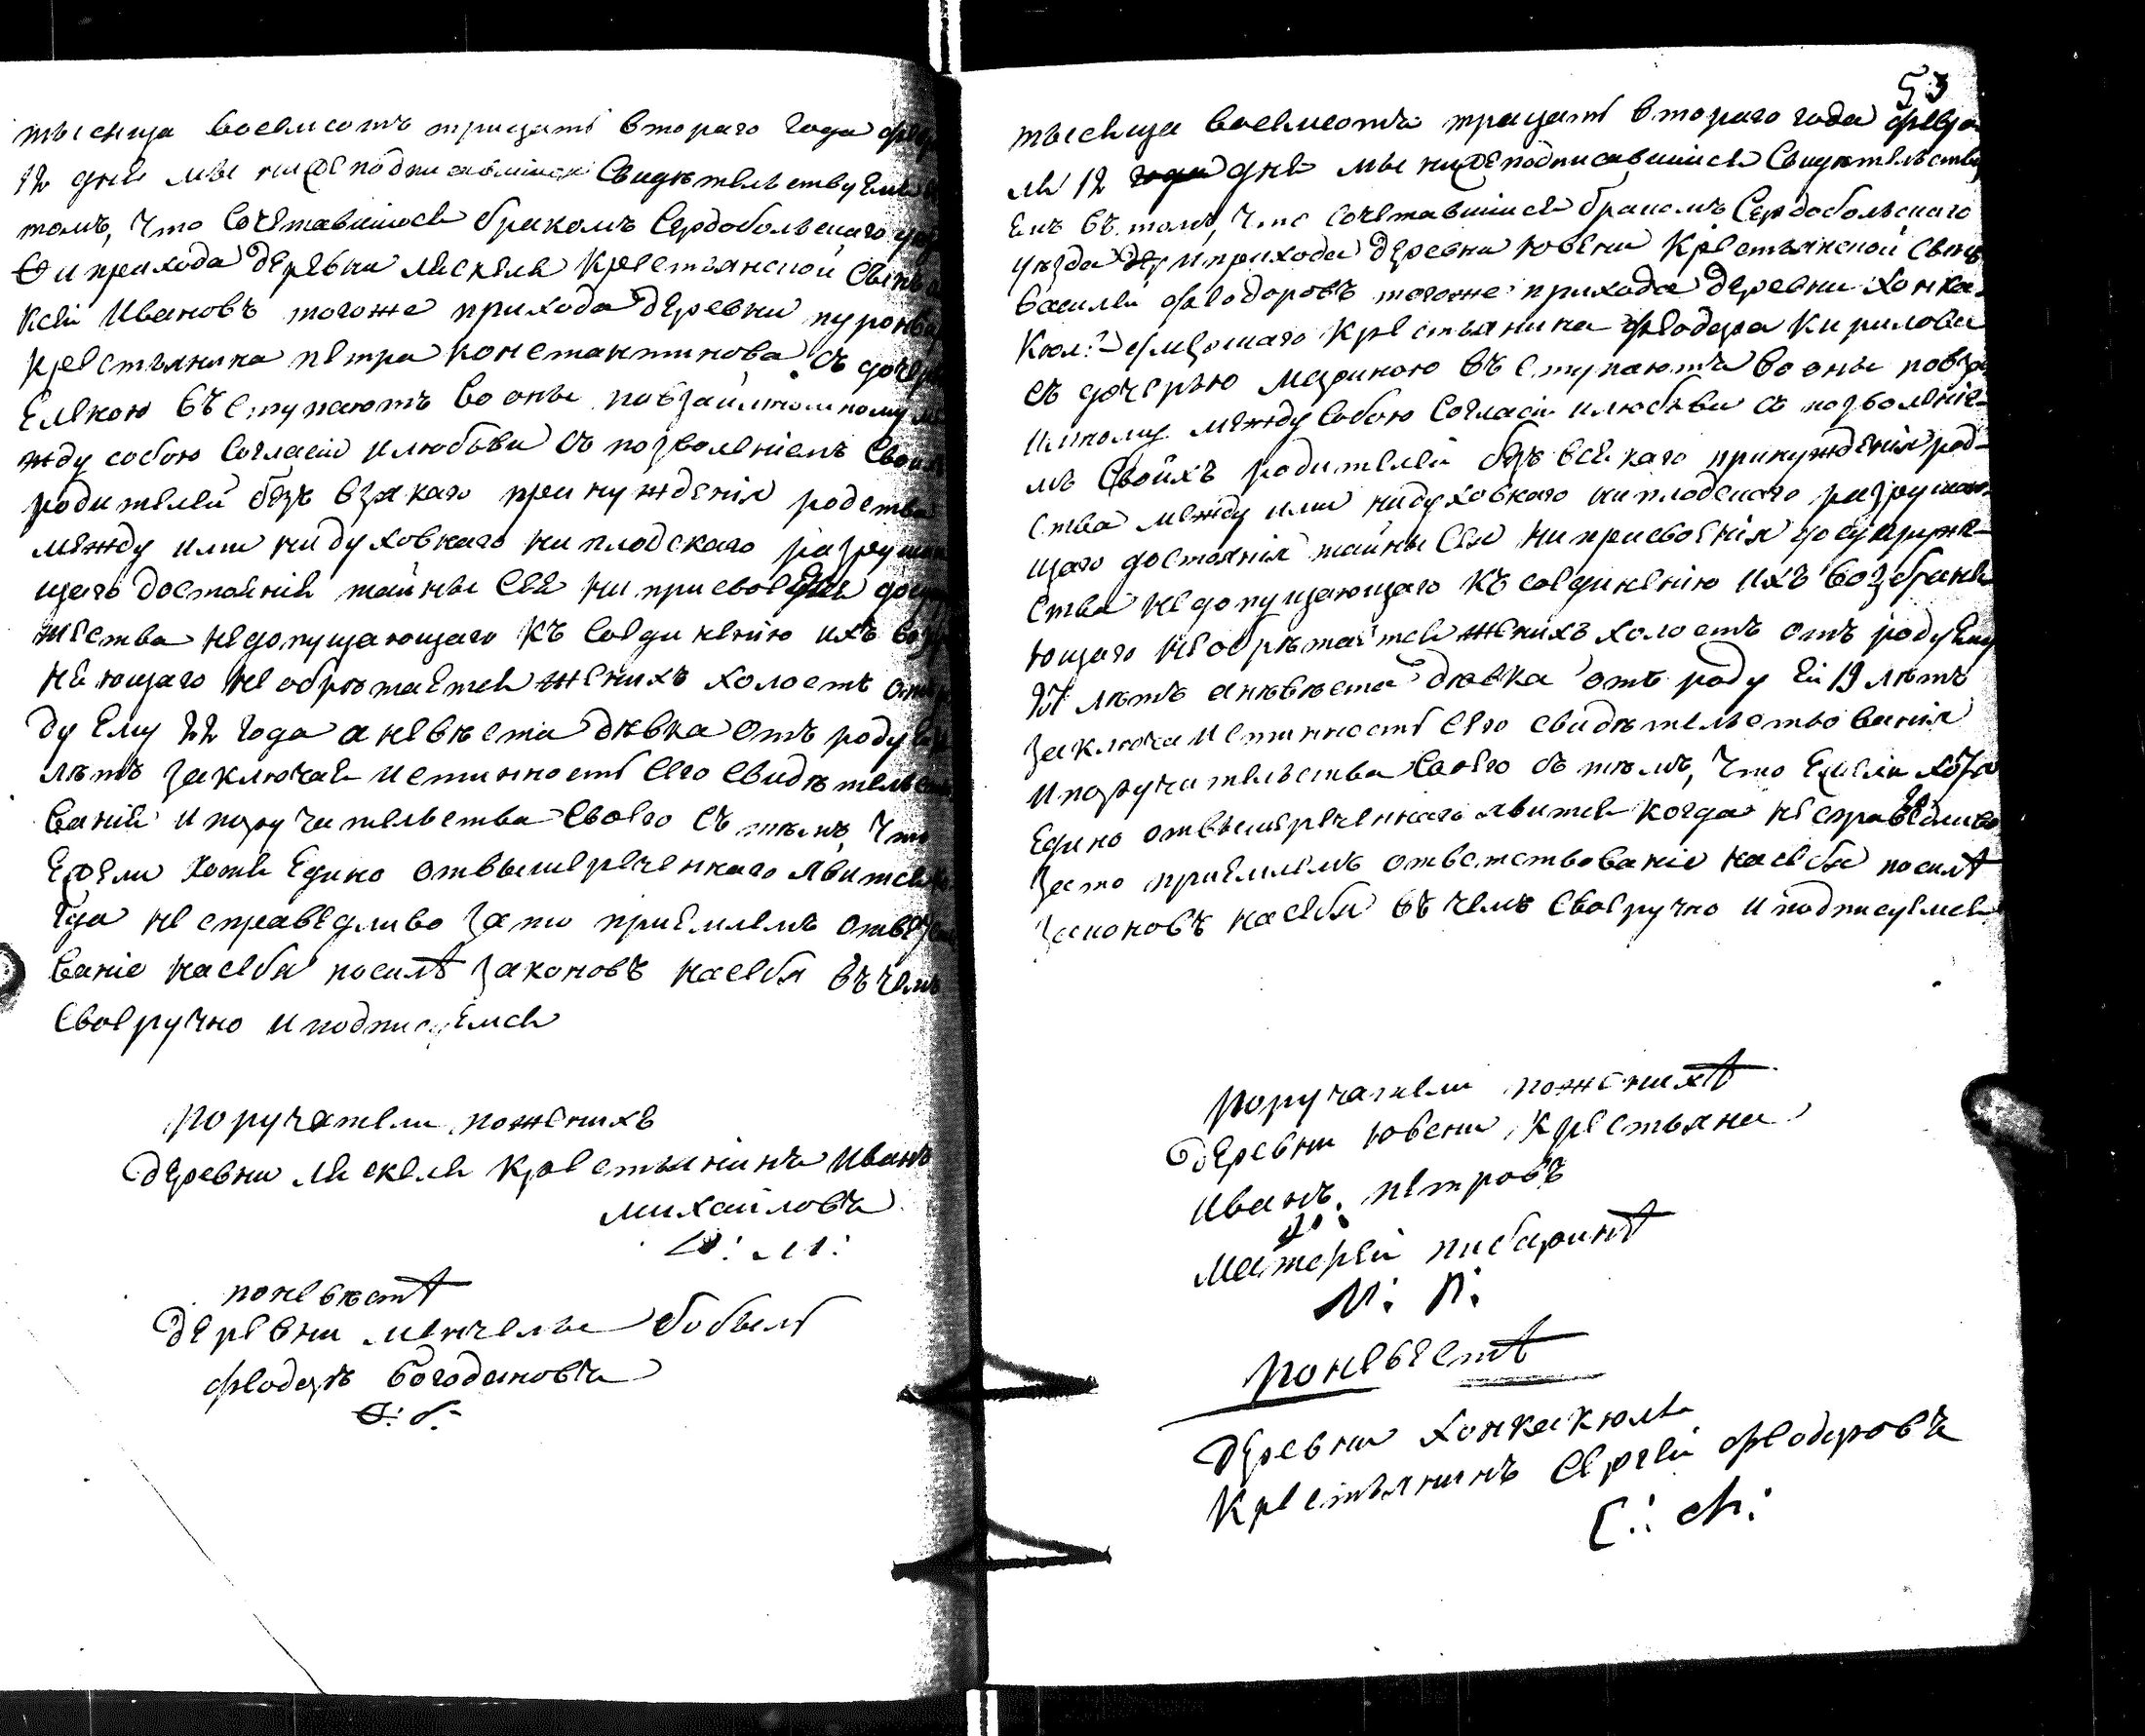 тысяща восемсотъ трицать втораго года
12 дня мы нижеподписавшися свидѣтельствуемъ
томъ, что сочетавшися бракомъ Сердобольскаго
и прихода деревни Ляскеля крестьянской сынъ
ксей Ивановъ тогоже прихода деревни
крестьянина петра константинова съ дочерью
Еленою въступаютъ во оны повзаимному
жду собою согласію илюбьви съ позволеніемъ своихъ
родителей безъ взякаго принужденія родства
между ими нидуховнаго ниплодскаго разрушаю
щаго достоянія тайны сея ниприсвоедия
жества недопущающаго къ соединенію ихъ
няющаго необрѣтается женихъ холостъ
ду ему 22 года а невѣста дѣвка отъ роду
лѣтъ заключая истинность сего свидѣтельст
ванія ипоручительства своего съ тѣмъ, что
Ежели хотя едино отвышереченнаго явится
гда несправедливо зато приемлемъ
ваніе насебя посилѣ законовъ насебя въчемъ
своеручно иподписуемся
поручатели поженихѣ
деревни Ляскеля крестьянинъ иванъ
михаиловъ
И: М:
поневѣстѣ
деревни бобыль
феодоръ богодановъ
Ѳ: б:
53
тысяща восемсотъ трицать втораго года февра
ля 12 дня мы нижеподписавшися свидѣтельству
емъ въ томъ, что сочетавшися бракомъ Сердобольскаго
уѣзда иприхода деревни ювени крестьянской сынъ
василей феодоровъ тогоже прихода деревни хонка-
кюля умершаго крестьянина феодора кирилова
съ дочерью мариною въступаютъ во оны повза
имному между собою согласію илюбьви съ позволеніе-
мъ своихъ родителей безъ всякаго принужденія род-
ства между ими нидуховнаго ниплодскаго разрушаю
щаго достоянія тайны сея ниприсвоенія досупруже-
ства недопущающаго къ соединенію ихъ возбраня
ющаго необрѣтается женихъ холостъ отъ роду ему
лѣтъ аневѣста дѣвка отъ роду ей 19 лѣтъ
заключа истинность сего свидѣтельствованія
ипоручительства своего съ тѣмъ, что Ежели хотя
едино отвышереченнаго явится когда несправедливо
зато приемлемъ отвѣтствованіе насебя посилѣ
законовъ насебя въ чемъ своеручно иподписуемся
поручатели поженихѣ
деревни ювени крестьяни
иванъ петровъ
матфей пибаринѣ
М: П:
поневестѣ
деревни хонкакюля
крестьянинъ сергей феодоровъ
С: Ф: